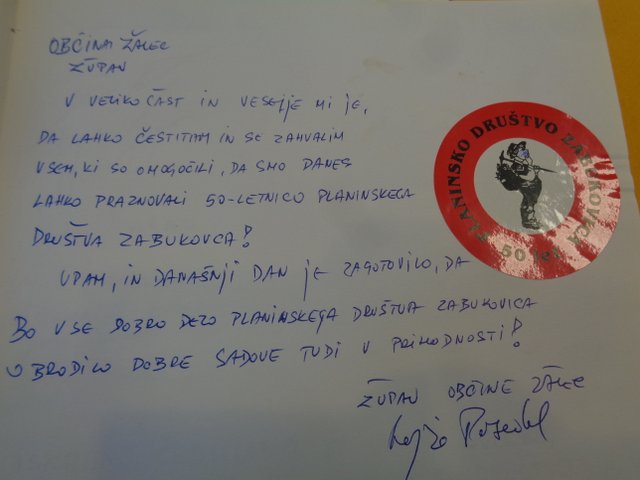 OBČINA ŽALEC
ŽUPAN
V VELIKO ČAST IN VESELJE MI JE,
DA LAHKO ČESTITAM IN SE ZAHVALIM
VSEM, KI SO OMOGOČILI, DA SMO DANES
LAHKO PRAZNOVALI 50-LETNICO PLANINSKEGA
DRUŠTVA ZABUKOVCA!
UPAM, IN DANAŠNJI DAN JE ZAGOTOVILO, DA
BO VSE DOBRO DELO PLANINSKEGA DRUŠTVA ZABUKOVICA
OBRODILO DOBRE SADOVE TUDI V PRIHODNOSTI!
ŽUPAN OBČINE ŽALEC
PLANINSKO DRUŠTVO ZABUKOVICA
50 let